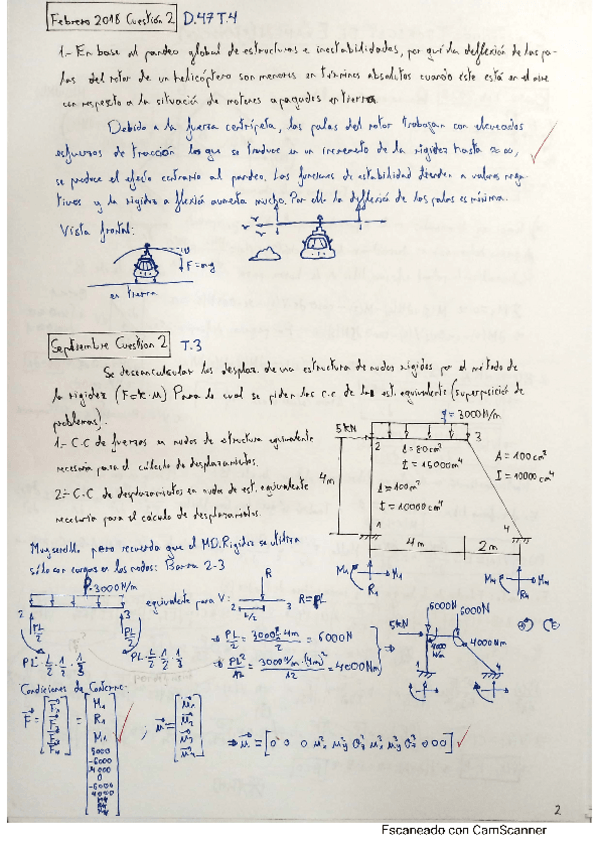 Febrero 2018 Cuestión 2 D.47 T.4
1.- En base al pandeo global de estructuras e inestabilidades, por qué la deflexión de las pa-
las del rotor de un helicóptero son menores en términos absolutos cuando éste está en el aire
con respecto a la situación de motores apagados en tierra
Debido a la fuerza centrípeta, las palas del rotor trabajan con elevados
esfuerzos de tracción lo que se traduce en un incremento de la rigidez hasta ∞,
se produce el efecto contrario al pandeo. Las funciones de estabilidad tienden a valores nega-
tivos y la rigidez a flexión aumenta mucho. Por ello la deflexión de las palas es mínima.
Vista frontal:
F=mg
en tierra
Septiembre Cuestion 2 T.3
Se desean calcular los desplaz. de una estructura de nudos rígidos por el método de
la rigidez (F=K·u) Para lo cual se piden las c.c de la est. equivalente (superposición de
problemas).
1.- C.C de fuerzas en nudos de estructura equivalente
necesaria para el cálculo de desplazamientos.
2.- C.C de desplazamientos en nudos de est. equivalente
necesaria para el cálculo de desplazamientos.
5kN
q = 3000N/m
2
3
I = 15000cm⁴
A = 100cm²
I = 10000cm⁴
4m
1
4
4m
2m
Muy sencillo pero recuerda que el MD.Rigidez se utiliza
sólo con cargas en los nudos: Barra 2-3
3000N/m
equivalente para V: 2 L/2 3 R=PL
R
2
3
PL/2
PL/2
PL·L/2·1/2·1/3
PL·L/2·1/2·1/3
⇒ PL/2 = 3000·4m/2 = 6000N
⇒ PL²/12 = 3000N/m·(4m)²/12 = 4000Nm
M₁
R₁
5kN
6000N
6000N
4000Nm
1
4
Condiciones de Contorno:
F =
=
M₁
R₁
M₁
5000
-6000
4000
0
-6000
4000
; u =
⇒ u = [0 0 0
0 0 0]
2
Escaneado con CamScanner